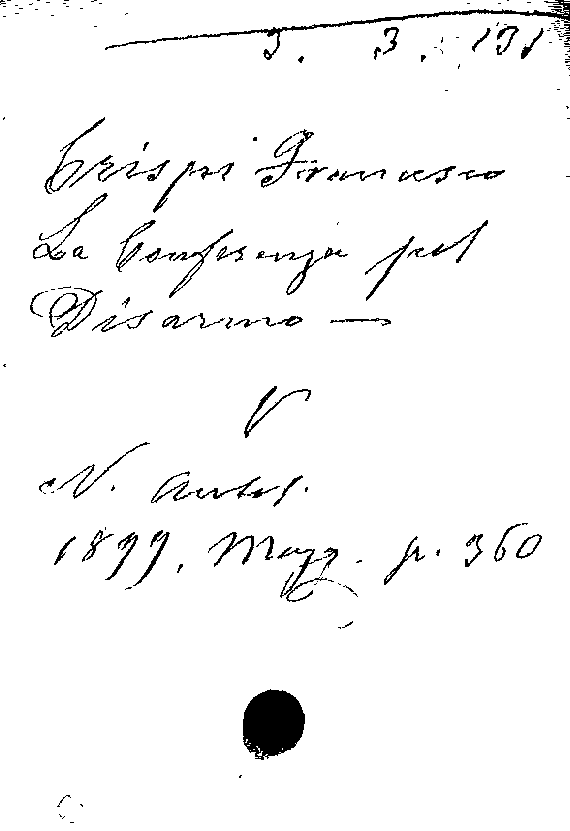 3. 3. 131
Crispi Francesco
La Conferenza pel
Disarmo —
V
N. Antol.
1899, Magg. p. 360